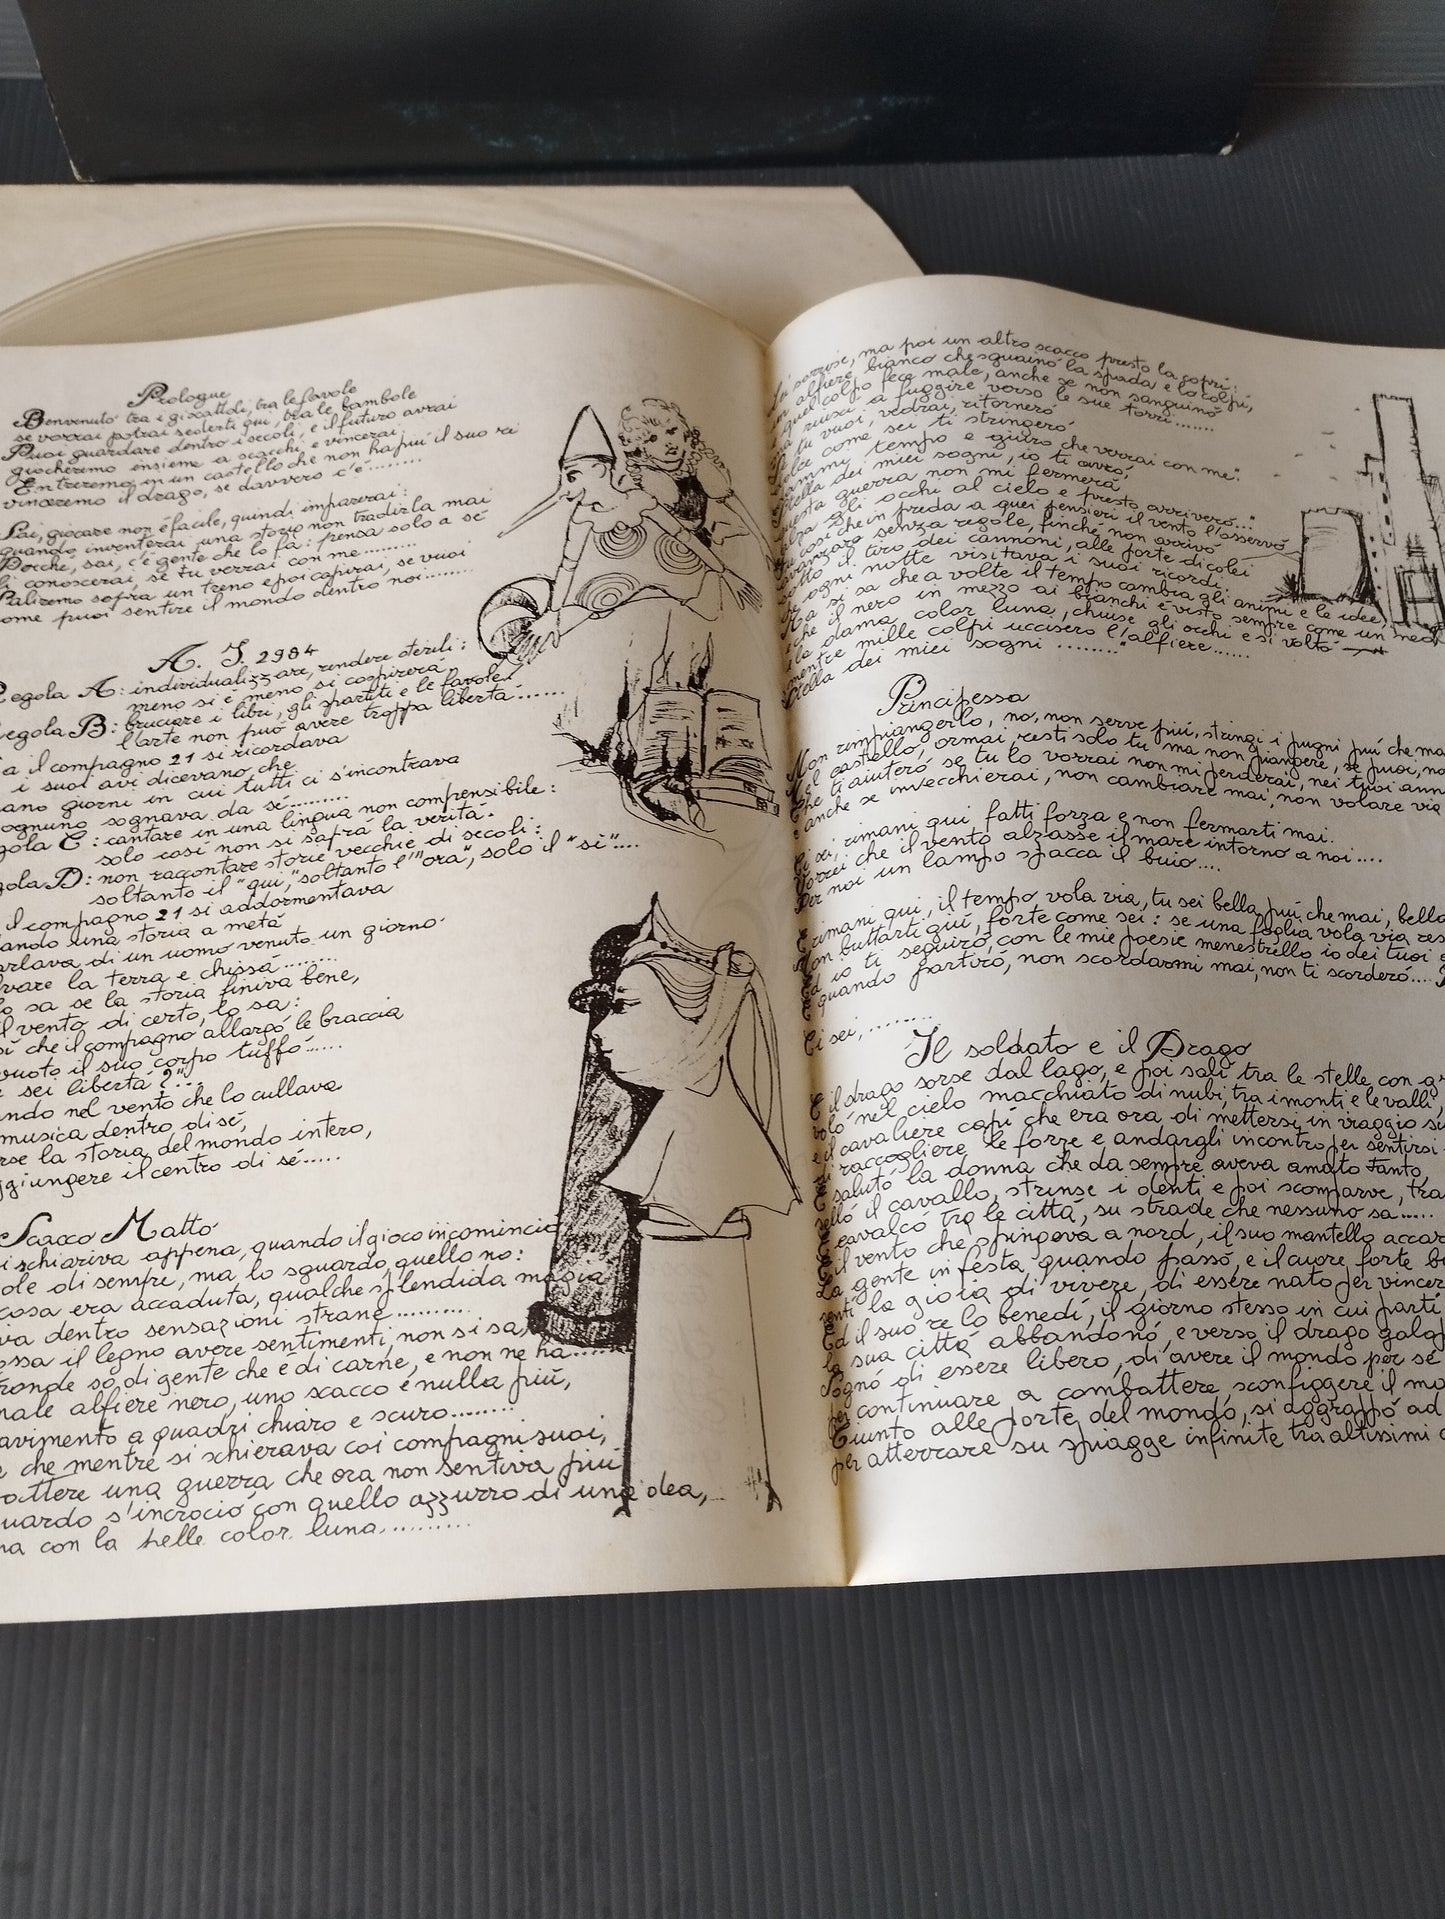 Prologue
Benvenuto tra i giocattoli, tra le favole
se vorrai potrai sederti qui, tra le bambole
Puoi guardare dentro i secoli, e il futuro avrai
giocheremo insieme a scacchi, e vincerai.
Entreremo in un castello che non ha piú il suo re
vinceremo il drago, se davvero c'é........
Sai, giocare non é facile, quindi imparerai:
quando inventerai una storia non tradirla mai
Perché, sai, c'é gente che lo fa: pensa solo a sé
li conoscerai, se tu verrai con me.........
Saliremo sopra un treno e poi capirai, se vuoi
come puoi sentire il mondo dentro noi........
A. I. 2984
Regola A: individualizzare, rendere sterili:
meno si é meno si capirerá
Regola B: bruciare i libri, gli spartiti e le favole
l'arte non puó avere troppa libertá.......
a il compagno 21 si ricordava
i suoi avi dicevano che
ano giorni in cui tutti ci s'incontrava
ognuno sognava da sé.........
gola C: cantare in una lingua non compensibile:
solo cosí non si saprá la veritá.
gola D: non raccontare storie vecchie di secoli:
soltanto il "qui", soltanto l'"ora", solo il "si"....
il compagno 21 si addormentava
ando una storia a metá
arlava di un uomo venuto un giorno
lvare la terra e chissá........
o sa se la storia finiva bene,
il vento di certo, lo sa:
sí che il compagno allargó le braccia
vuoto il suo corpo tuffó......
sei libertá?"..
ando nel vento che lo cullava
musica dentro di sé,
rse la storia del mondo intero,
ggiungere il centro di sé.....
Scacco Matto
i schiariva appena, quando il gioco incominció
ole di sempre, ma lo sguardo, quello no:
cosa era accaduta, qualche splendida magia
va dentro sensazioni strane..........
ossa il legno avere sentimenti, non si sa,
ronde so di gente che é di carne, e non ne ha......
male alfiere nero, uno scacco é nulla piú,
avimento a quadri chiaro e scuro........
che mentre si schierava coi compagni suoi,
ottere una guerra che ora non sentiva piú
uardo s'incroció con quello azzurro di una dea,
na con la pelle color luna..........
Lei sorrise, ma poi un altro scacco presto la coprí:
un alfiere bianco che sguainó la spada e lo colpí,
quel colpo fece male, anche se non sanguinó
riuscí a fuggire verso le sue torri.......
tu vuoi, vedrai, ritorneró
dolce come sei ti stringeró
ammi tempo e giuro che verrai con me:
Stella dei miei sogni, io ti avró,
questa guerra non mi fermerá
alza gli occhi al cielo e presto, arriveró..."
cosí che in preda a quei pensieri il vento l'osservó
avanzare senza regole, finché non arrivó
sotto il tiro dei cannoni, alle porte di colei
che ogni notte visitava i suoi ricordi
Ma si sa che a volte il tempo cambia gli animi e le idee,
che il nero in mezzo ai bianchi é visto sempre come un neo
e la dama color luna, chiuse gli occhi e si voltó
mentre mille colpi uccisero l'alfiere.......
Stella dei miei sogni ........"
Principessa
Non rimpiangerlo, no, non serve piú, stringi i pugni piú che mai
el castello, ormai resti solo tu ma non piangere, se puoi, no
che ti aiuteró se tu lo vorrai non mi perderai, nei tuoi anni
e anche se invecchierai, non cambiare mai, non volare via
Ci sei, rimani qui fatti forza e non fermarti mai.
Vorrei che il vento alzasse il mare intorno a noi....
Per noi un lampo spacca il buio....
rimani qui, il tempo vola via, tu sei bella piú che mai, bella
non buttarti giú, forte come sei: se una foglia vola via res
io ti seguiró, con le mie poesie menestrello io dei tuoi
quando partiró, non scordarmi mai, non ti scorderó....
Ci sei,.........
Il soldato e il Drago
E il drago sorse dal lago, e poi salí tra le stelle con
voló nel cielo macchiato di nubi, tra i monti e le valli,
e il cavaliere capí che era ora di mettersi in viaggio su
di raccogliere le forze e andargli incontro per sentirsi
salutó la donna che da sempre aveva amato tanto,
selló il cavallo, strinse i denti e poi scomparve, tra
cavalcó tra le cittá, su strade che nessuno sa.....
il vento che spingeva a nord, il suo mantello accar
La gente in festa quando passó, e il cuore forte b
sentí la gioia di vivere, di essere nato per vincer
Ed il suo re lo benedí, il giorno stesso in cui partí
la sua cittá abbandonó, e verso il drago galop
Sognó di essere libero, di avere il mondo per sé
per continuare a combattere, sconfiggere il ma
Giunto alle porte del mondo, si aggrappó ad
per atterrare su spiagge infinite tra altissimi